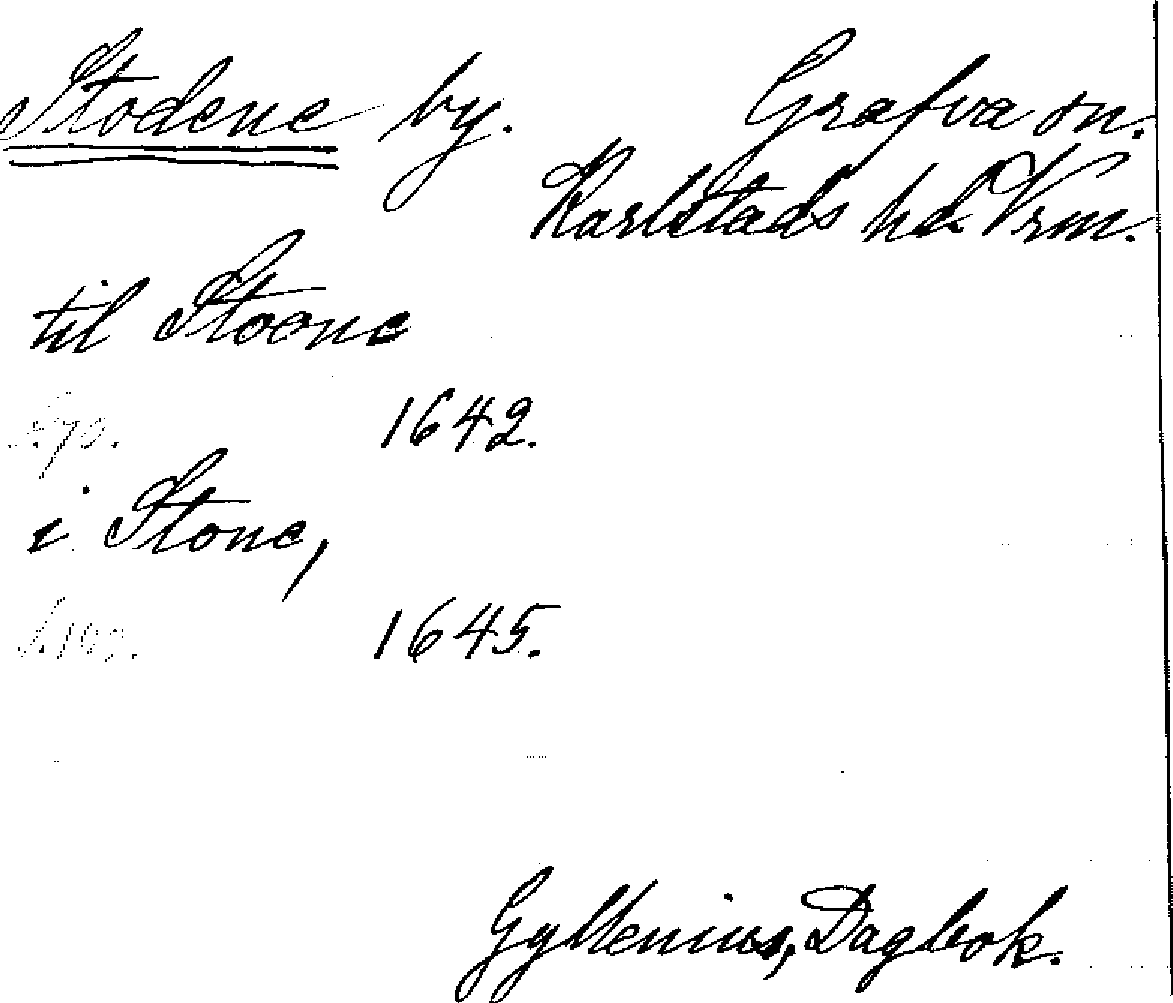 Stodene by. Grafva sn.
Karlstads hd Vrm.
til Stoene
s. 70. 1642.
i Stone,
1645.
Gyllenius, Dagbok.